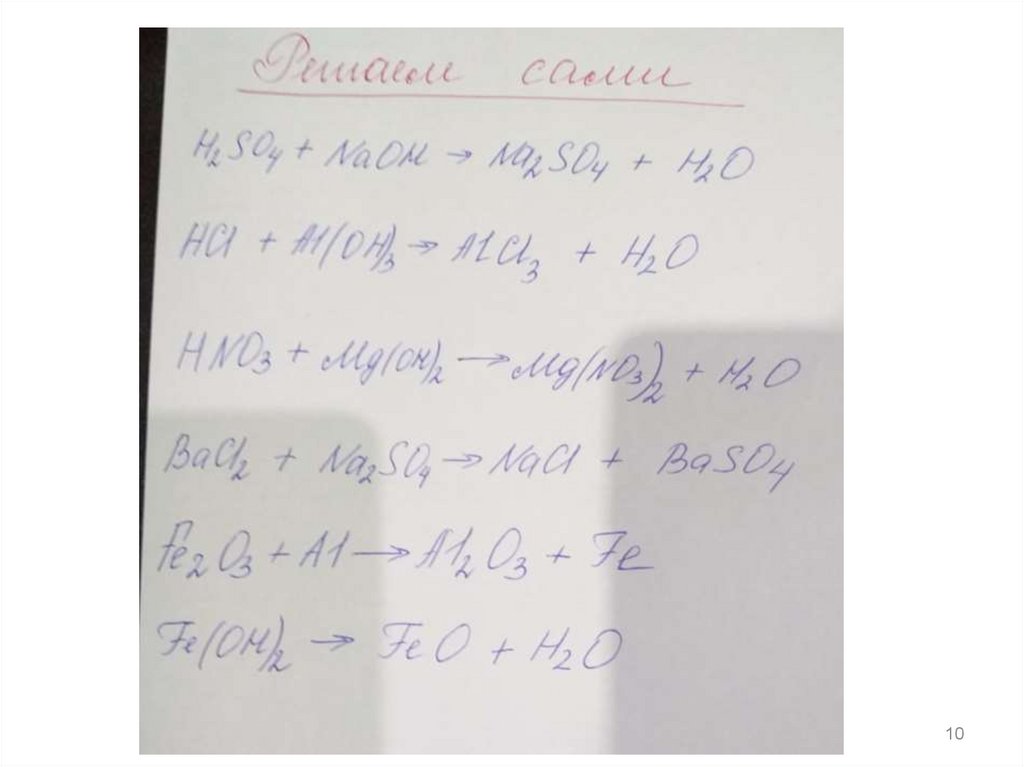 Решаем сами
H₂SO₄ + NaOH → Na₂SO₄ + H₂O
HCl + Al(OH)₃ → AlCl₃ + H₂O
HNO₃ + Mg(OH)₂ → Mg(NO₃)₂ + H₂O
BaCl₂ + Na₂SO₄ → NaCl + BaSO₄
Fe₂O₃ + Al → Al₂O₃ + Fe
Fe(OH)₂ → FeO + H₂O
10